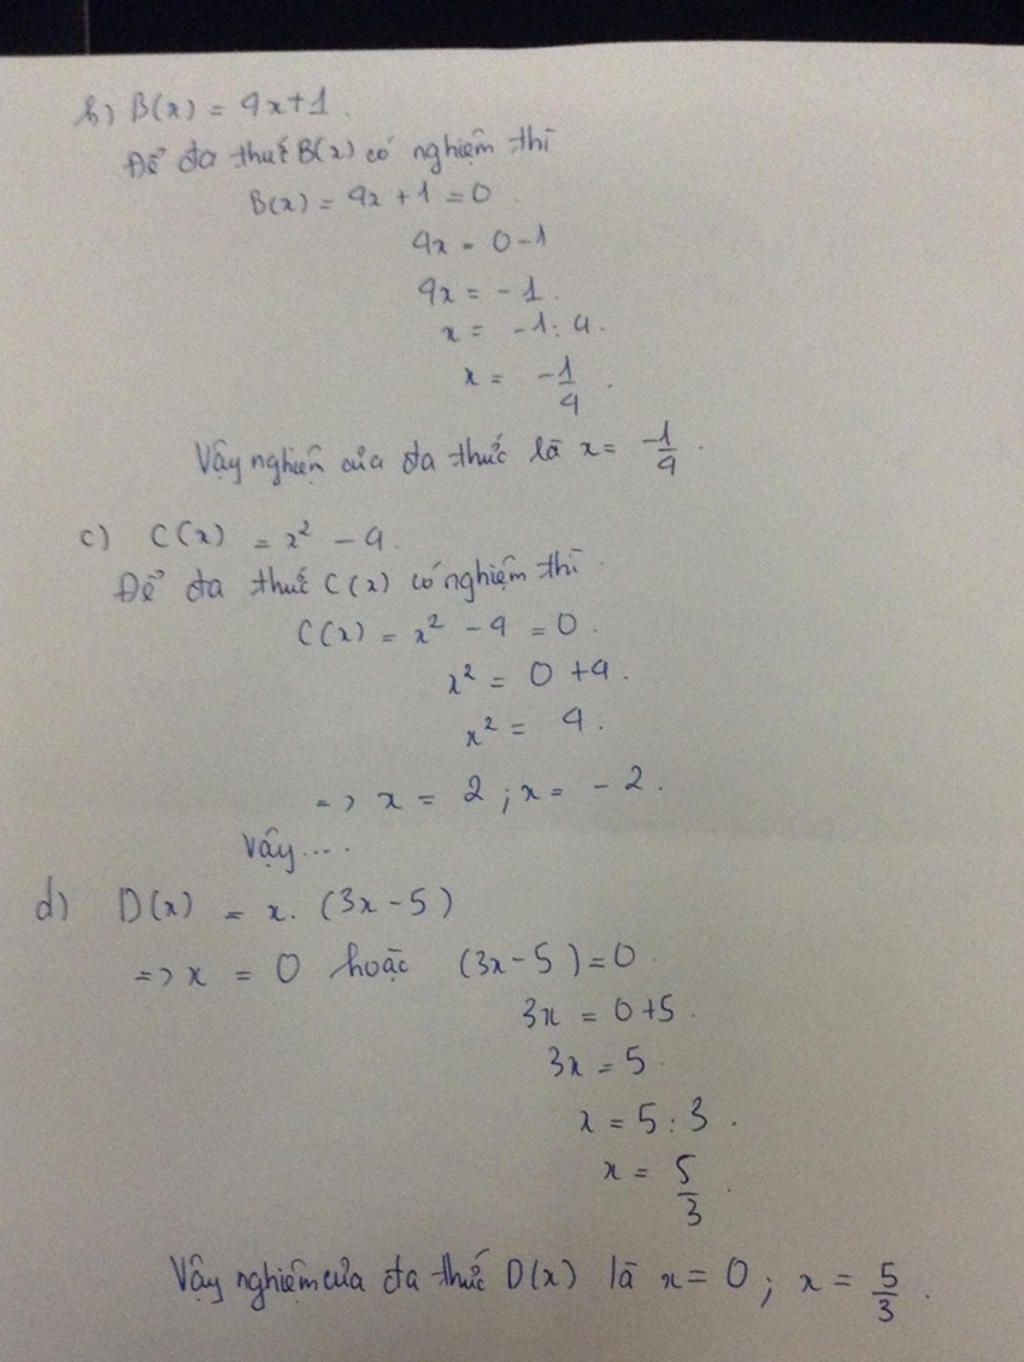 b) B(x) = 4x+1.
Để đa thức B(x) có nghiệm thì
B(x) = 4x + 1 = 0.
4x = 0-1
4x = -1.
x = -1:4.
x = -1/4.
Vậy nghiệm của đa thức là x = -1/4.
c) C(x) = x² - 4.
Để đa thức C(x) có nghiệm thì.
C(x) = x² - 4 = 0.
x² = 0 +4.
x² = 4.
=> x = 2 ; x = -2.
Vậy....
d) D(x) = x. (3x-5)
=> x = 0 hoặc (3x-5)=0.
3x = 0+5.
3x = 5.
x = 5:3.
x = 5/3.
Vậy nghiệm của đa thức D(x) là x = 0 ; x = 5/3.